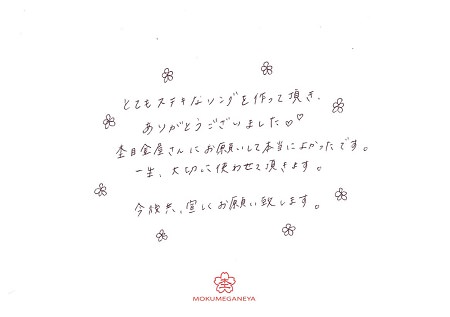 とてもステキなリングを作って頂き、
ありがとうございました♡♡
杢目金屋さんにお願いして本当によかったです。
一生、大切に使わせて頂きます。
今後共、宜しくお願い致します。
杢
MOKUMEGANEYA